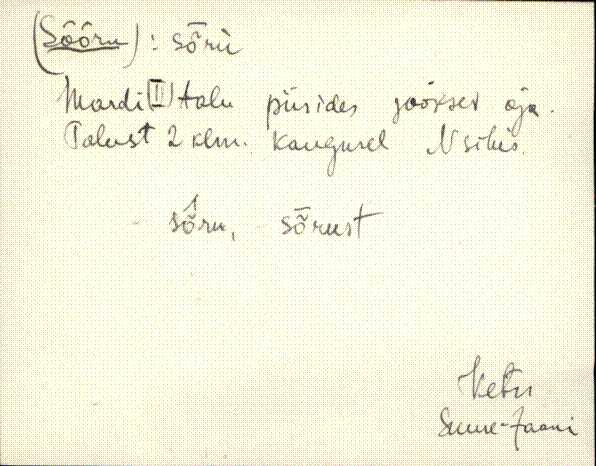 (Sõõru) : sȭrù
Mardi [II] talu piirides jooksev oja.
Talust 2 klm. kaugusel N sihis.
sõ̂ru, sȭrust
Suure-Jaani